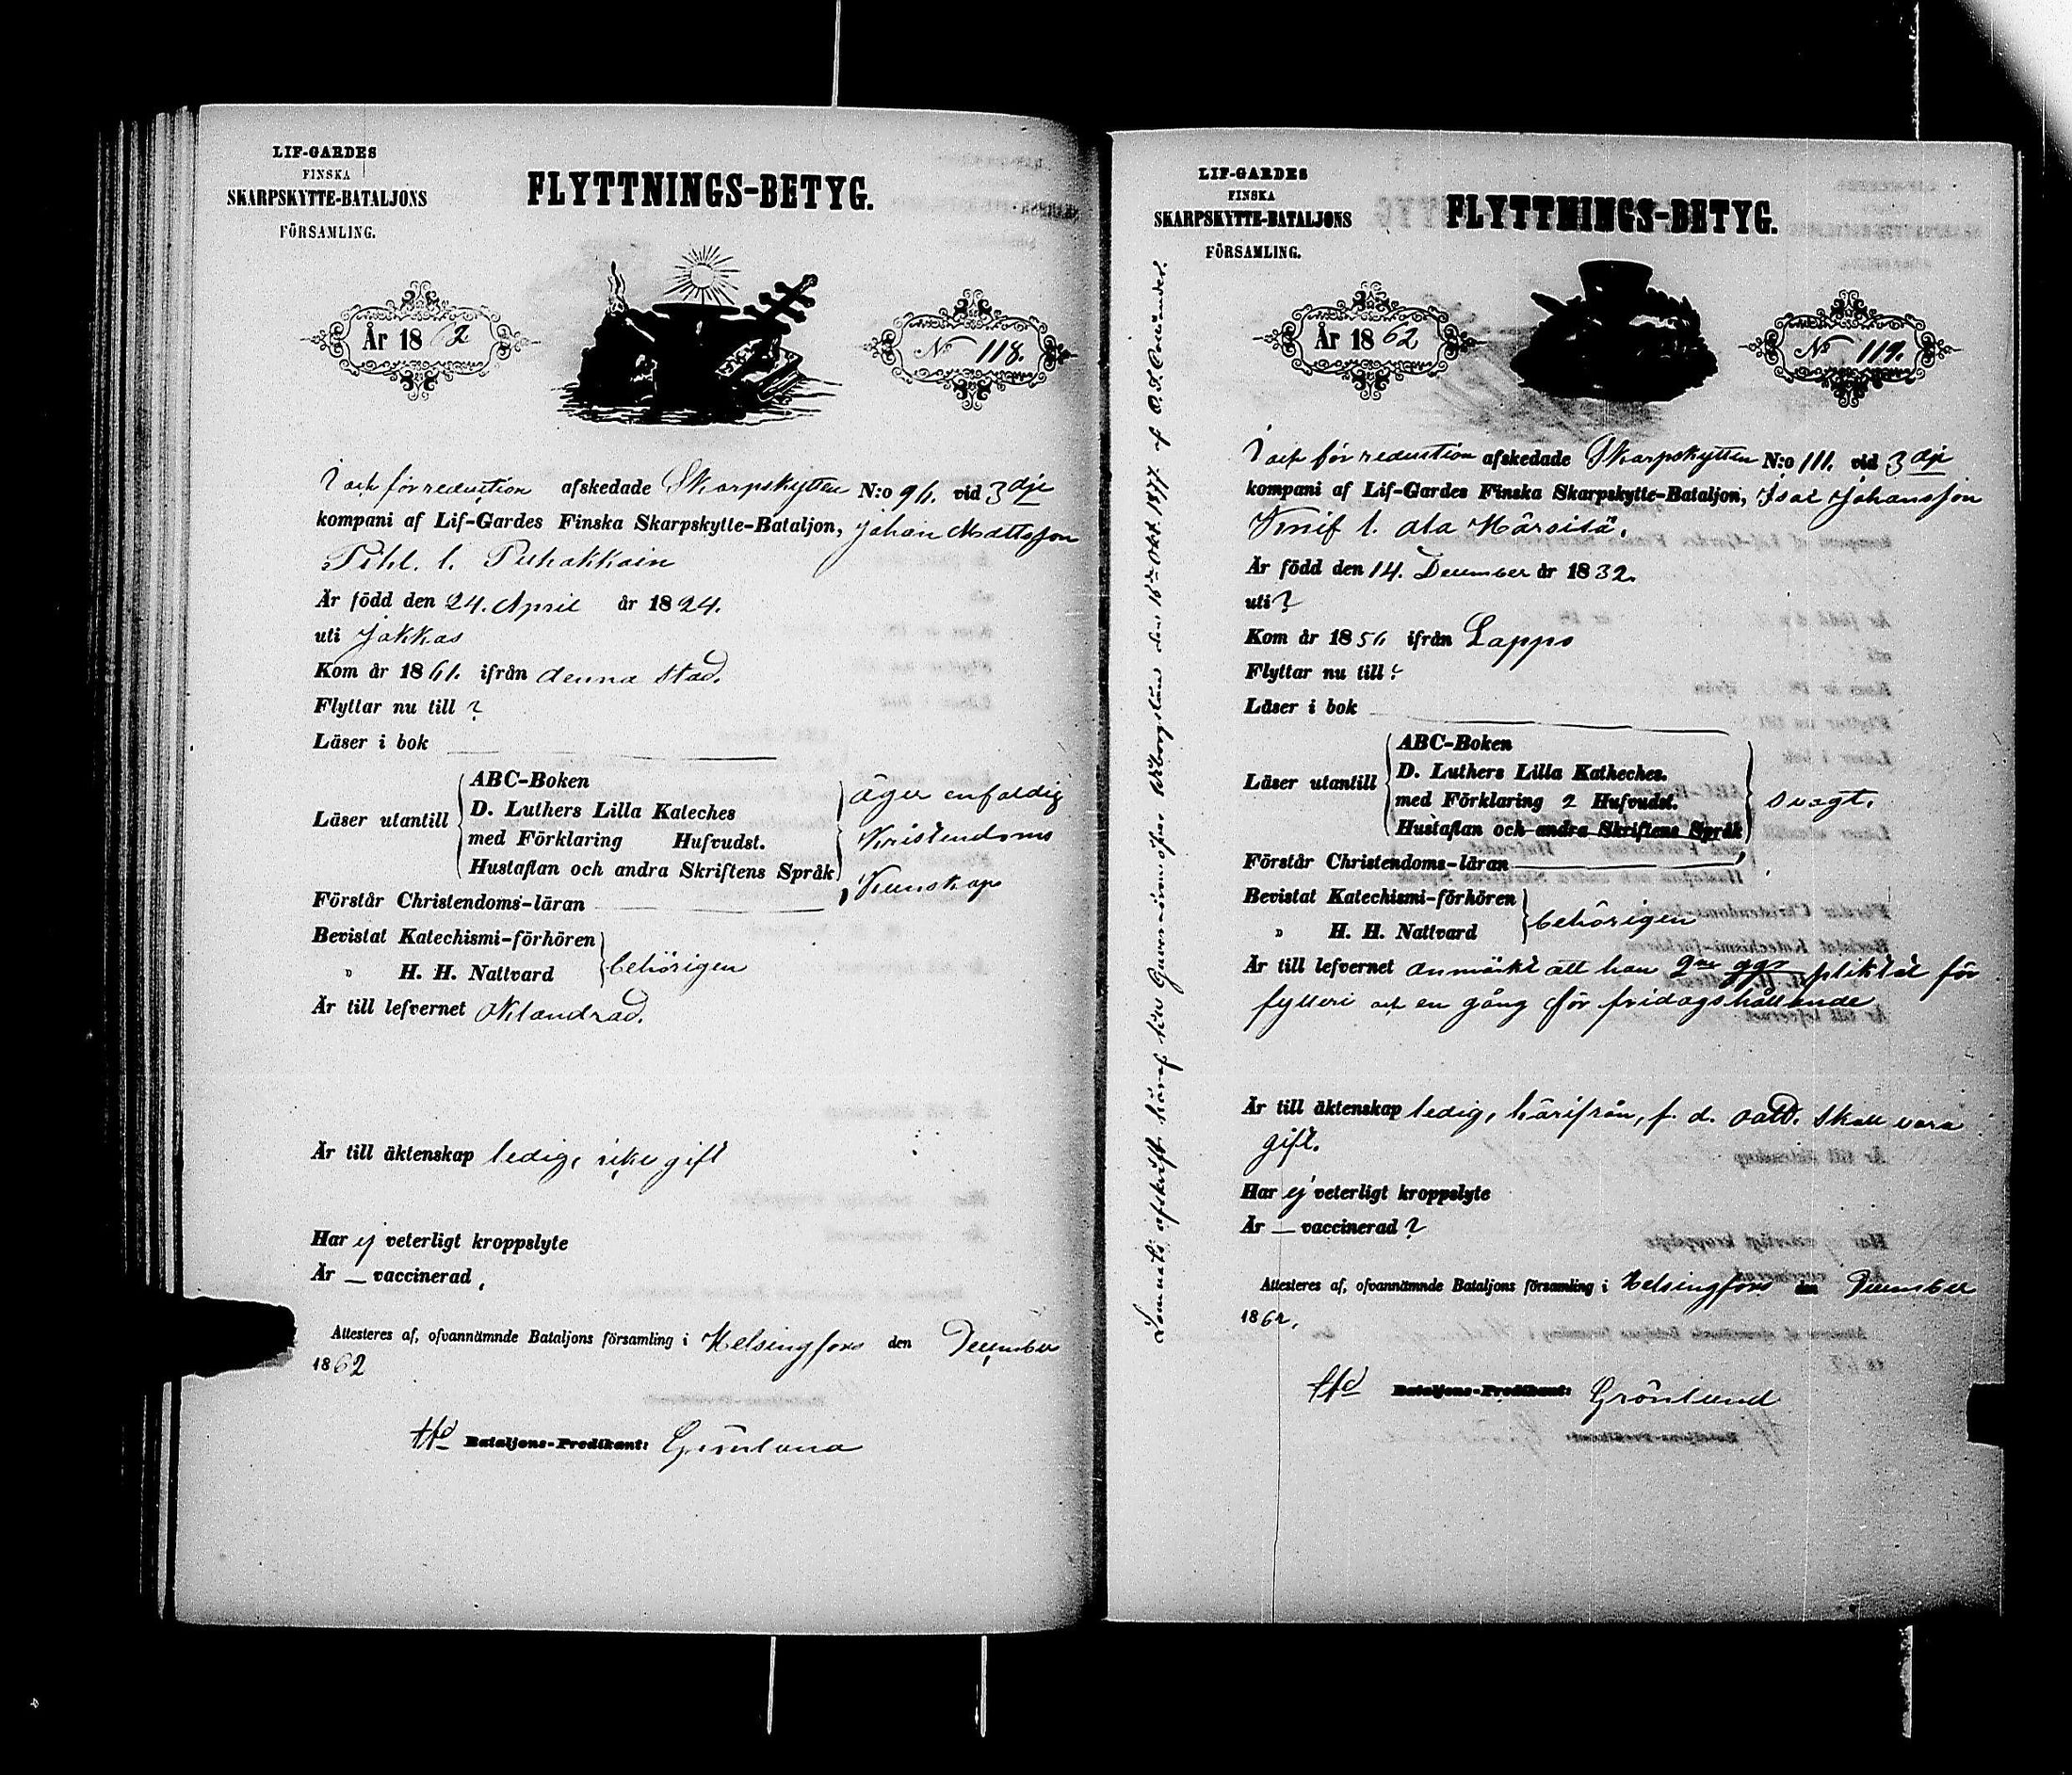 LIF-GARDES
FINSKA
SKARPSKYTTE-BATALJONS
FÖRSAMLING.
FLYTTNINGS-BETYG.
År 1862
No 118.
I och för reduction afskedade Skarpskytten N:o 96. vid 3dje
kompani af Lif-Gardes Finska Skarpskytte-Bataljon, Johan Mattsson
Pihl. l.
Är född den 24. April år 1824.
uti Jokkas
Kom år 1861. ifrån denna stad.
Flyttar nu till ?
Läser i bok
Läser utantill
ABC-Boken
D. Luthers Lilla Kateches
med Förklaring Hufvudst.
Hustaflan och andra Skriftens Språk
äger enfaldig
Kristendoms
Kunskap
Förstår Christendoms-läran
Bevistat Katechismi-förhören
" H. H. Nattvard
behörigen
Är till lefvernet oklandrad.
Är till äktenskap ledig, icke gift
Har ej veterligt kroppslyte
Är — vaccinerad,
Attesteres af, ofvannämnde Bataljons församling i Helsingfors den December
1862
Bataljons-Predikant: Grönlund
LIF-GARDES
FINSKA
SKARPSKYTTE-BATALJONS
FÖRSAMLING.
FLYTTNINGS-BETYG.
År 1862
No 119.
I och för reduction afskedade Skarpskytten N:o 111. vid 3dje
kompani af Lif-Gardes Finska Skarpskytte-Bataljon, Isac Johansson
Knif l. ala
Är född den 14. December år 1832.
uti ?
Kom år 1856 ifrån Lappo
Flyttar nu till ?
Läser i bok
Läser utantill
ABC-Boken
D. Luthers Lilla Katheches.
med Förklaring 2 Hufvudst.
Hustaflan och andra Skriftens Språk
svagt.
Förstår Christendoms-läran
Bevistat Katechismi-förhören
" H. H. Nattvard
behörigen
Är till lefvernet anmärkt att han 2ne ggr pliktat för
fylleri och en gång för fridagshållande
Är till äktenskap ledig, härifrån, f. d. skall vara
gift.
Har ej veterligt kroppslyte
Är — vaccinerad ?
Attesteres af, ofvannämnde Bataljons församling i Helsingfors den December
1862,
Bataljons-Predikant: Grönlund
afskrift häraf till Guvernören öfver Wiborgs län den 16de Okt. 1877 af